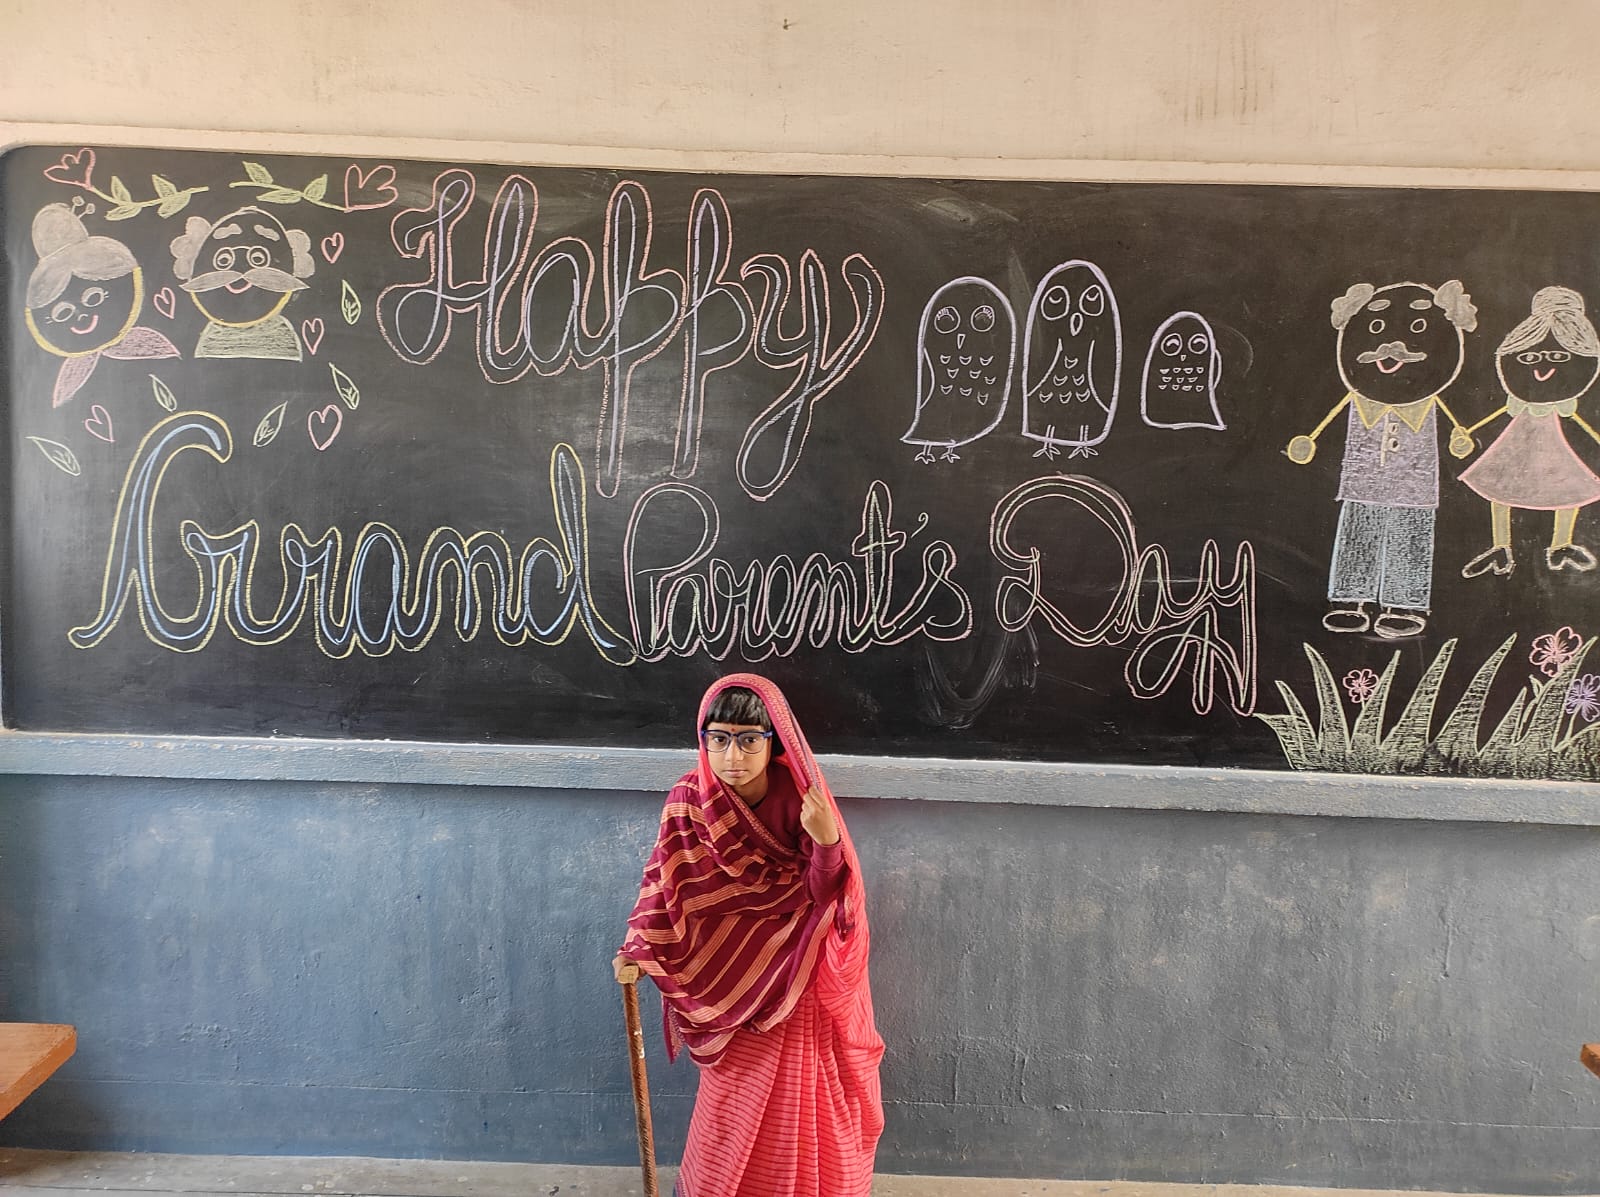 Happy
Grand Parent's Day